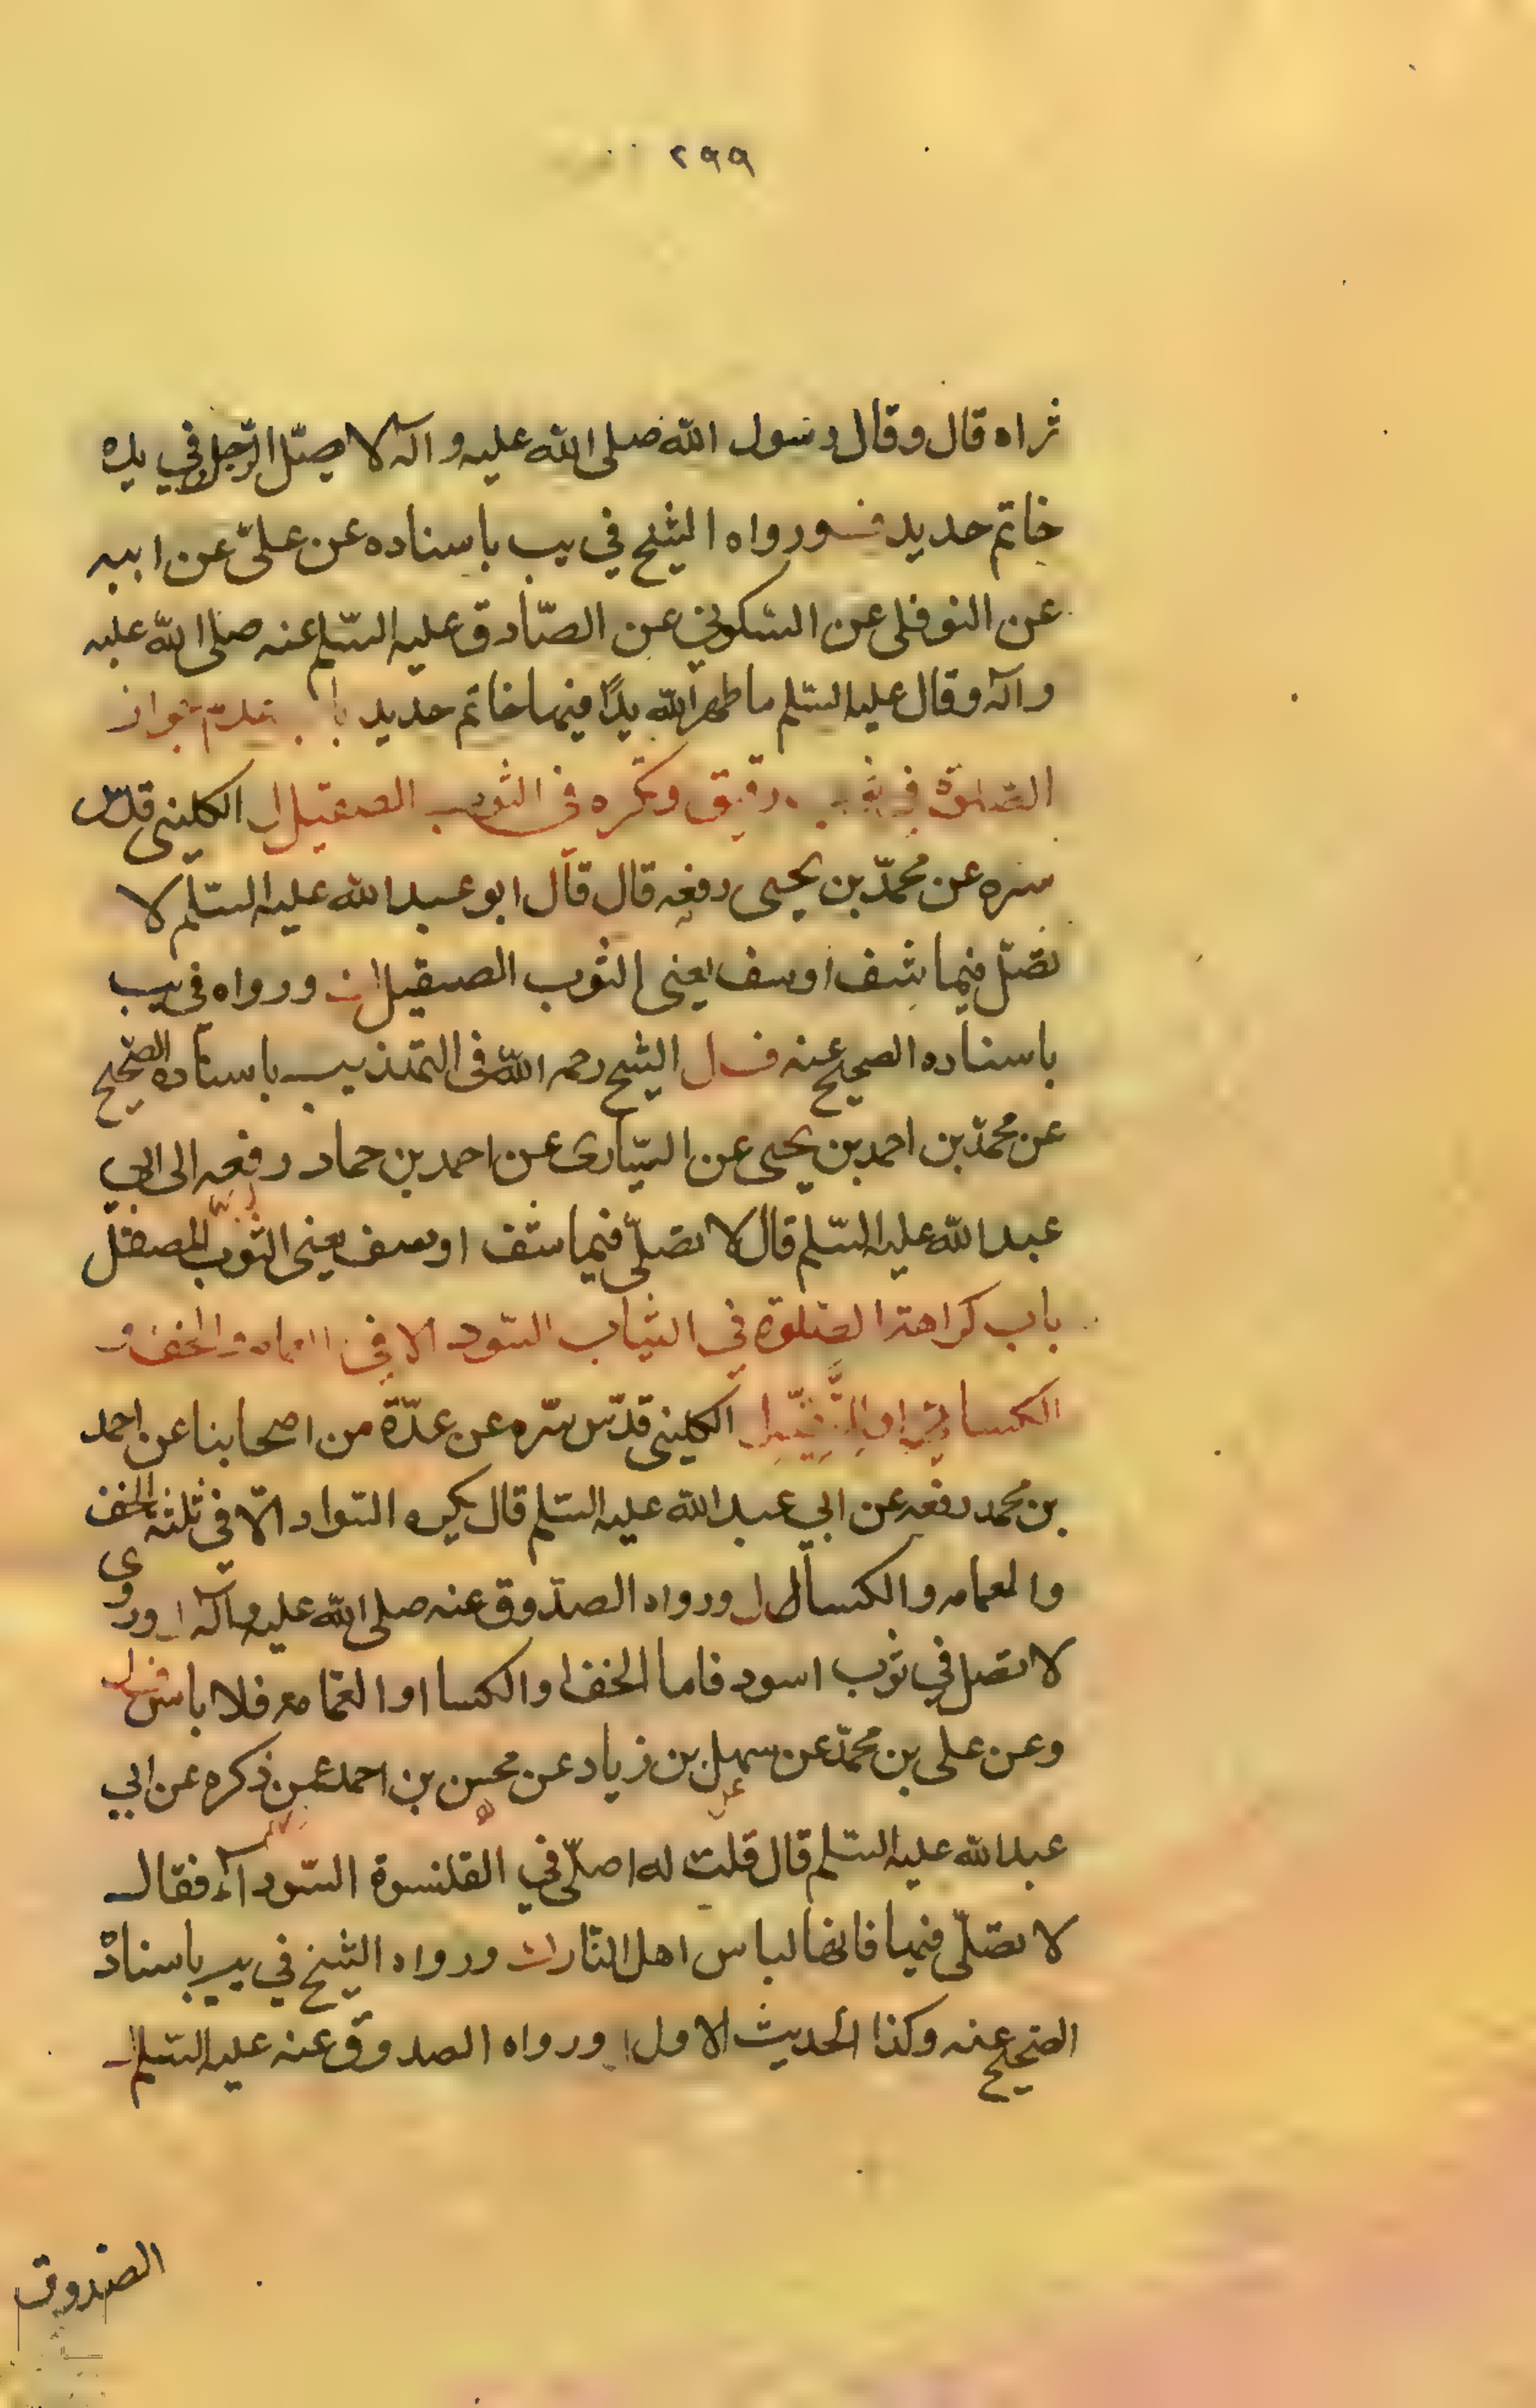 ٢٩٩
ثراه قال وقال رسول الله صلى الله عليه وآله لا يصلّ الرجل وفي يده
خاتم حديد ورواه الشيخ في يب باسناده عن علىّ عن ابيه
عن النوفلى عن السّكوني عن الصّادق عليه السّلم عنه صلى الله عليه
وآله وقال عليه السّلم ما طهر الله يدًا فيها خاتم حديد باب عدم جواز
الصّلوة في ثوب رقيق وتكره فى الثوب الصيقيل الكلينى قدس
سره عن محمّد بن يحيى رفعه قال قال ابو عبد الله عليه السّلم لا
تصلّ فيما شف او سف يعنى الثوب الصيقيل ورواه فى يب
باسناده الصحيح عنه الشيخ رحمه الله فى التهذيب باسناده الصّحيح
عن محمّد بن احمد بن يحيى عن السّيّارى عن احمد بن حماد رفعه الى ابي
عبد الله عليه السّلم قال لا تصلّى فيما شف او سف يعنى الثوب المصقل
باب كراهة الصّلوة في الثياب السّود الا في العمامه والخف و
الكسا الكلينى قدّس سّره عن عدّة من اصحابنا عن احمد
بن محمد رفعه عن ابي عبد الله عليه السّلم قال يكره السّواد الّا فى ثلثه الخف
والعمامه والكسا ورواه الصدّوق عنه صلى الله عليه وآله وروى
لا تصل في ثوب اسود فاما الخف او الكسا او العمّامه فلا باس
وعن على بن محمّد عن سهل بن زياد عن محسن بن احمد عمن ذكره عن ابي
عبد الله عليه السّلم قال قلت له اصلّى في القلنسوة السّوداء فقال
لا تصلّى فيها فانها لباس اهل النّار ورواه الشيخ في يب باسناده
الصّحيح عنه وكذا الحديث الاول ورواه الصدوق عنه عليه السّلم
الصّدوق